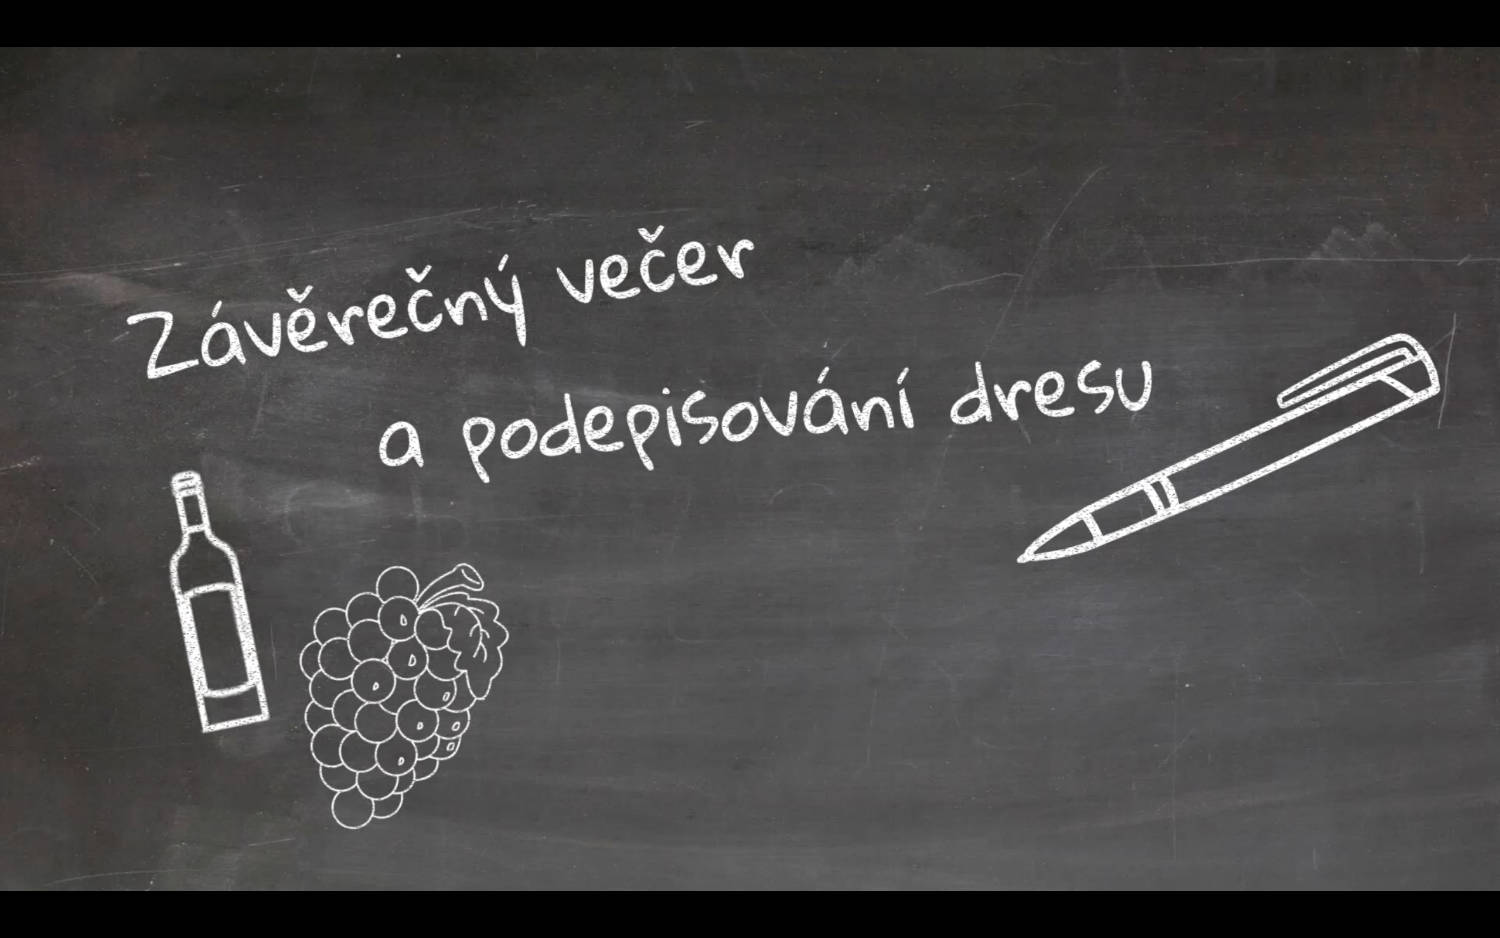 Závěrečný večer
a podepisování dresu